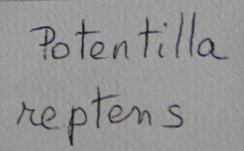 Potentilla
reptens